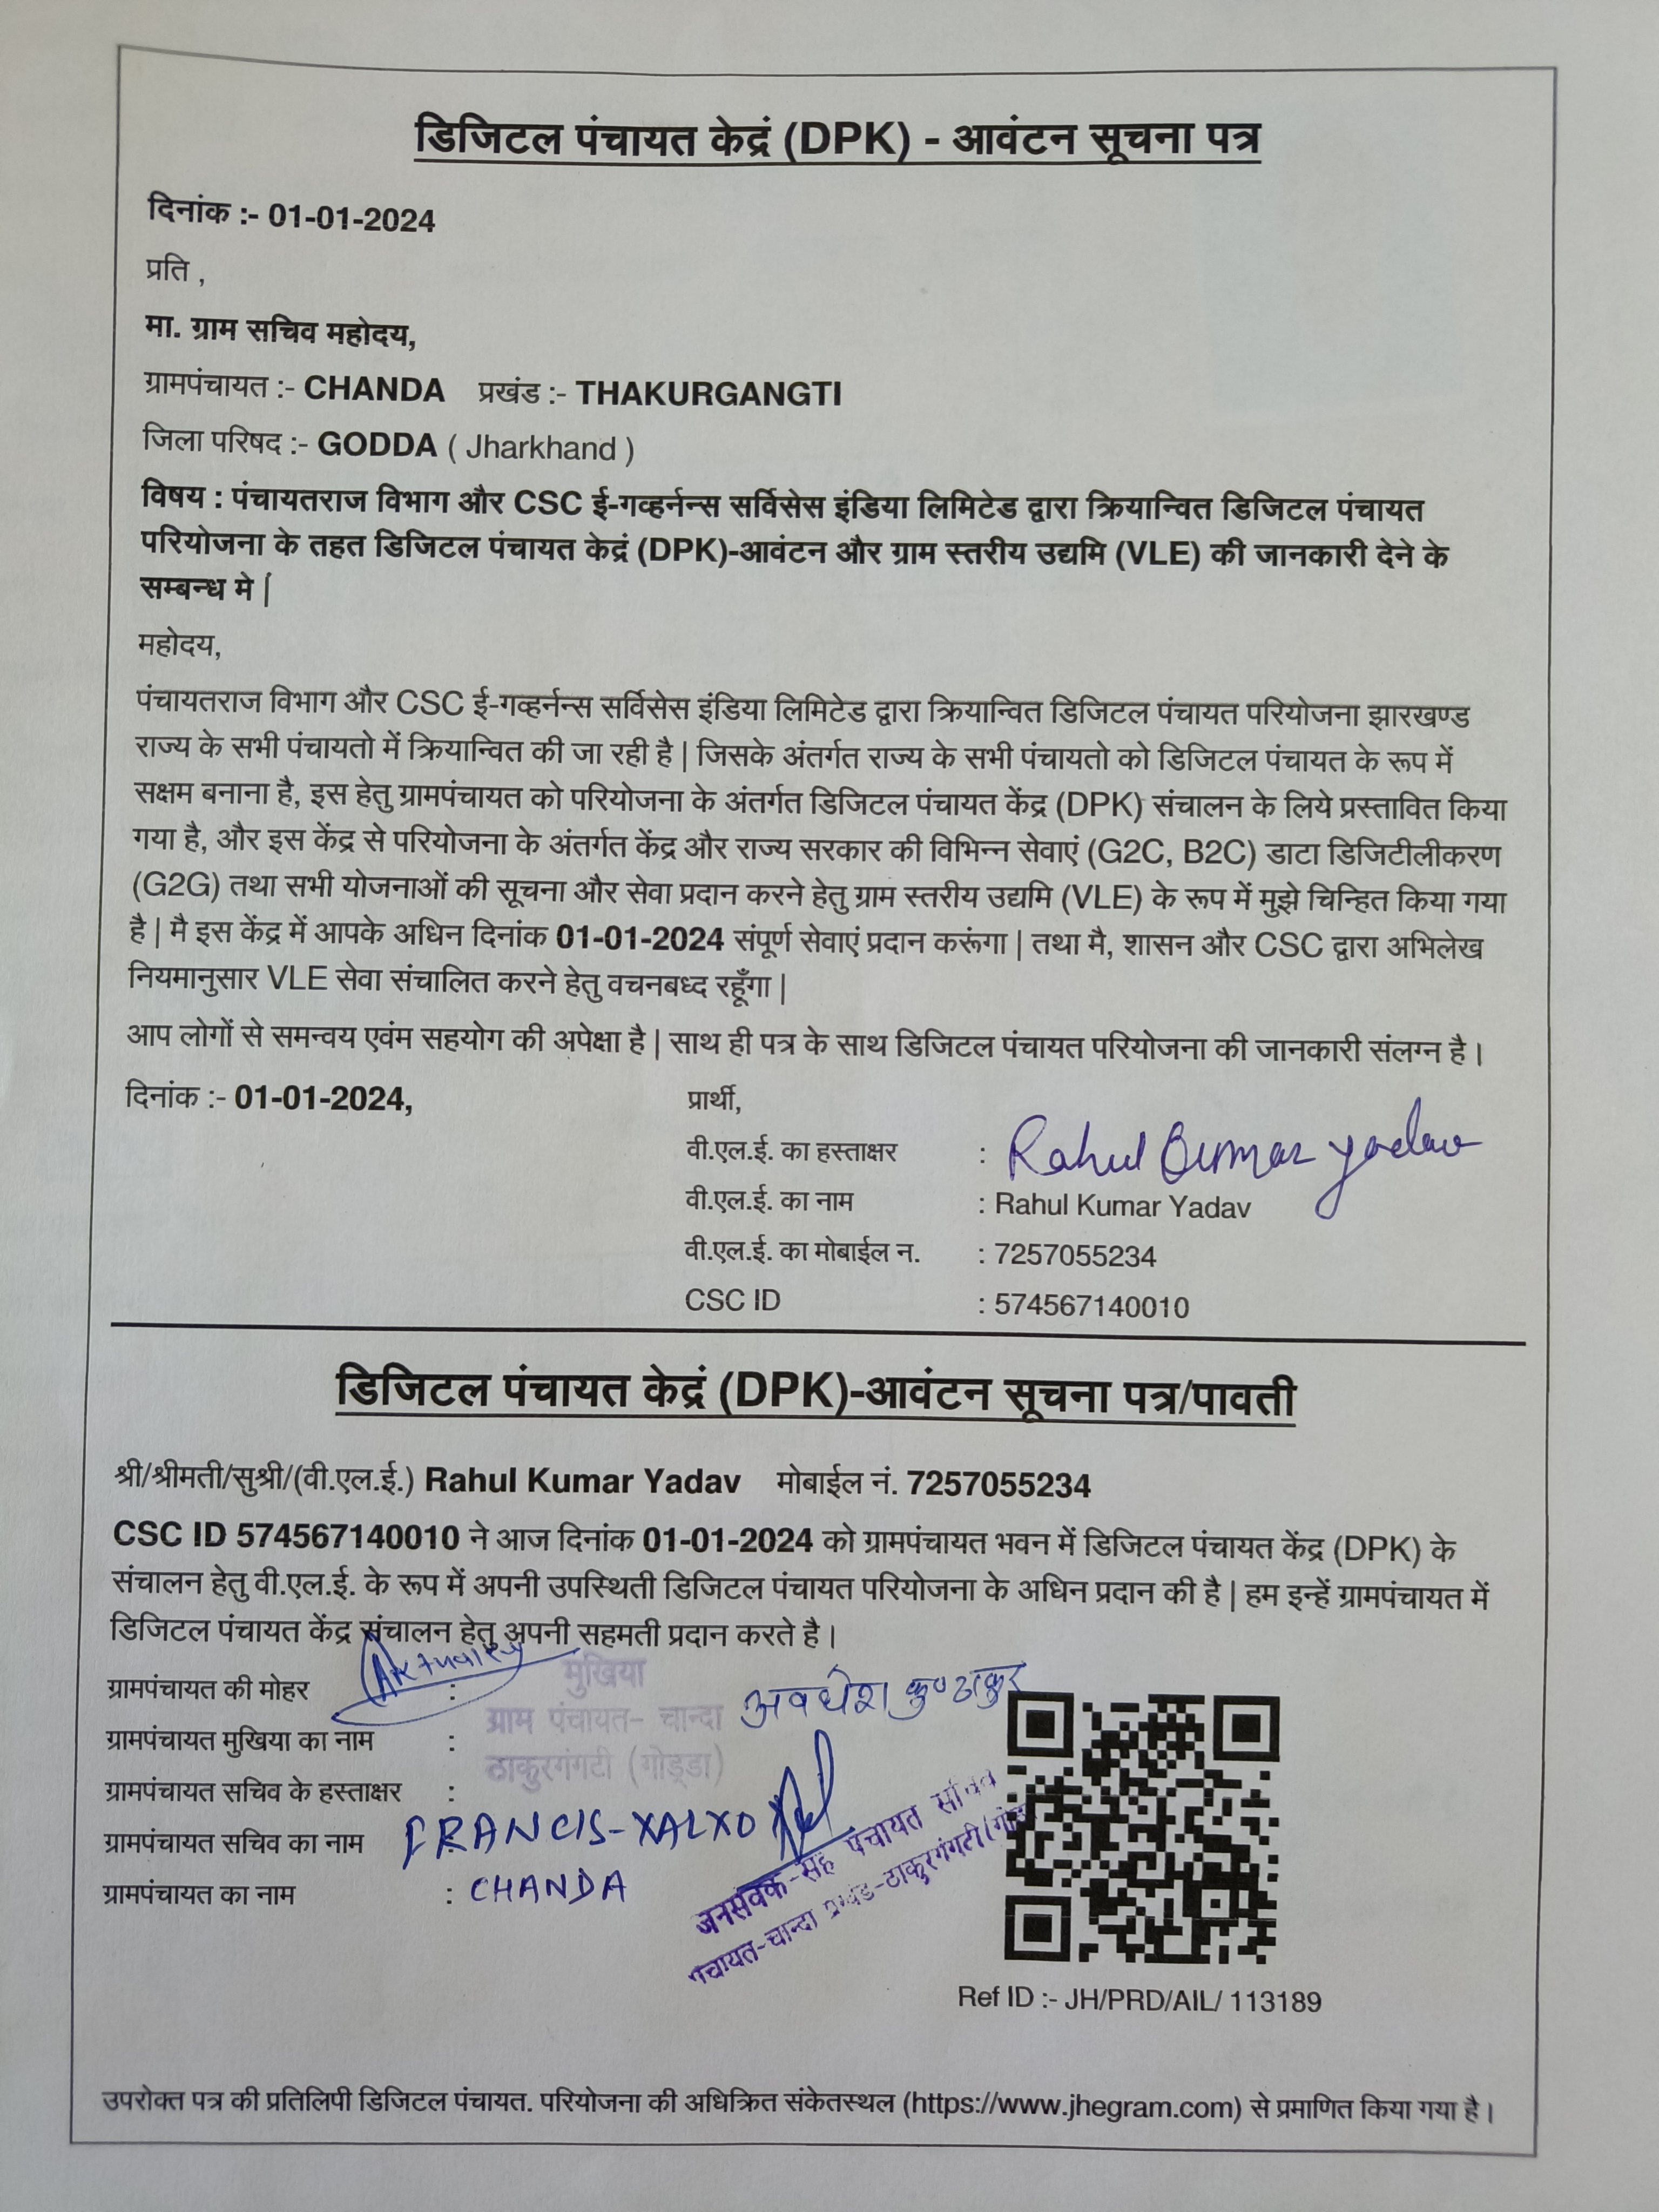 डिजिटल पंचायत केद्रं (DPK) - आवंटन सूचना पत्र
दिनांक :- 01-01-2024
प्रति ,
मा. ग्राम सचिव महोदय,
ग्रामपंचायत :- CHANDA प्रखंड :- THAKURGANGTI
जिला परिषद :- GODDA ( Jharkhand )
विषय : पंचायतराज विभाग और CSC ई-गव्हर्नन्स सर्विसेस इंडिया लिमिटेड द्वारा क्रियान्वित डिजिटल पंचायत
परियोजना के तहत डिजिटल पंचायत केद्रं (DPK)-आवंटन और ग्राम स्तरीय उद्यमि (VLE) की जानकारी देने के
सम्बन्ध मे |
महोदय,
पंचायतराज विभाग और CSC ई-गव्हर्नन्स सर्विसेस इंडिया लिमिटेड द्वारा क्रियान्वित डिजिटल पंचायत परियोजना झारखण्ड
राज्य के सभी पंचायतो में क्रियान्वित की जा रही है | जिसके अंतर्गत राज्य के सभी पंचायतो को डिजिटल पंचायत के रूप में
सक्षम बनाना है, इस हेतु ग्रामपंचायत को परियोजना के अंतर्गत डिजिटल पंचायत केंद्र (DPK) संचालन के लिये प्रस्तावित किया
गया है, और इस केंद्र से परियोजना के अंतर्गत केंद्र और राज्य सरकार की विभिन्न सेवाएं (G2C, B2C) डाटा डिजिटीलीकरण
(G2G) तथा सभी योजनाओं की सूचना और सेवा प्रदान करने हेतु ग्राम स्तरीय उद्यमि (VLE) के रूप में मुझे चिन्हित किया गया
है | मै इस केंद्र में आपके अधिन दिनांक 01-01-2024 संपूर्ण सेवाएं प्रदान करूंगा | तथा मै, शासन और CSC द्वारा अभिलेख
नियमानुसार VLE सेवा संचालित करने हेतु वचनबध्द रहूँगा |
आप लोगों से समन्वय एवंम सहयोग की अपेक्षा है | साथ ही पत्र के साथ डिजिटल पंचायत परियोजना की जानकारी संलग्न है।
दिनांक :- 01-01-2024, प्रार्थी,
वी.एल.ई. का हस्ताक्षर : Rahul Kumar Yadav
वी.एल.ई. का नाम : Rahul Kumar Yadav
वी.एल.ई. का मोबाईल न. : 7257055234
CSC ID : 574567140010
डिजिटल पंचायत केद्रं (DPK)-आवंटन सूचना पत्र/पावती
श्री/श्रीमती/सुश्री/(वी.एल.ई.) Rahul Kumar Yadav मोबाईल नं. 7257055234
CSC ID 574567140010 ने आज दिनांक 01-01-2024 को ग्रामपंचायत भवन में डिजिटल पंचायत केंद्र (DPK) के
संचालन हेतु वी.एल.ई. के रूप में अपनी उपस्थिती डिजिटल पंचायत परियोजना के अधिन प्रदान की है | हम इन्हें ग्रामपंचायत में
डिजिटल पंचायत केंद्र संचालन हेतु अपनी सहमती प्रदान करते है।
ग्रामपंचायत की मोहर : मुखिया
ग्राम पंचायत- चान्दा
ठाकुरगंगटी (गोड्डा)
ग्रामपंचायत मुखिया का नाम : अवधेश कु० ठाकुर
ग्रामपंचायत सचिव के हस्ताक्षर :
ग्रामपंचायत सचिव का नाम FRANCIS-XALXO
ग्रामपंचायत का नाम : CHANDA
जनसेवक-सह पंचायत सचिव
पंचायत-चान्दा प्रखंड-ठाकुरगंगटी(गोड्डा
Ref ID :- JH/PRD/AIL/ 113189
उपरोक्त पत्र की प्रतिलिपी डिजिटल पंचायत. परियोजना की अधिक्रित संकेतस्थल (https://www.jhegram.com) से प्रमाणित किया गया है।